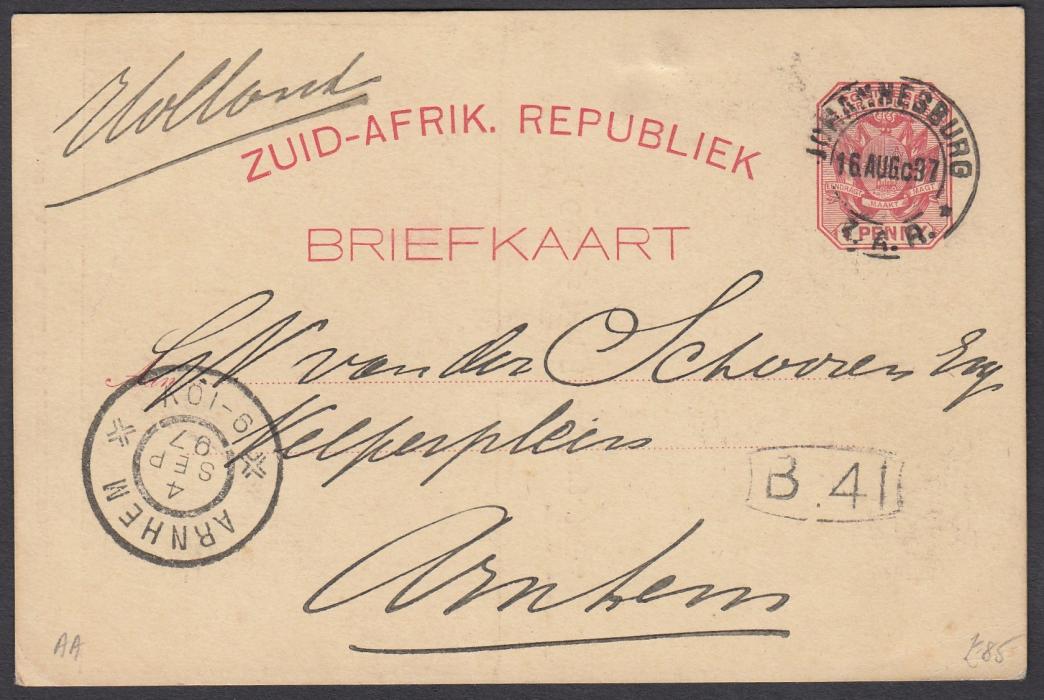 Holland
ZUID-AFRIK. REPUBLIEK
BRIEFKAART
JOHANNESBURG
16 AUG 97
Z.A.R.
EENDRAGT MAAKT MAGT
PENNY
Aan
van der Schooren Esq
Velperplein
Arnhem
9-10V
4
SEP
97
ARNHEM
B.41
AA
£85